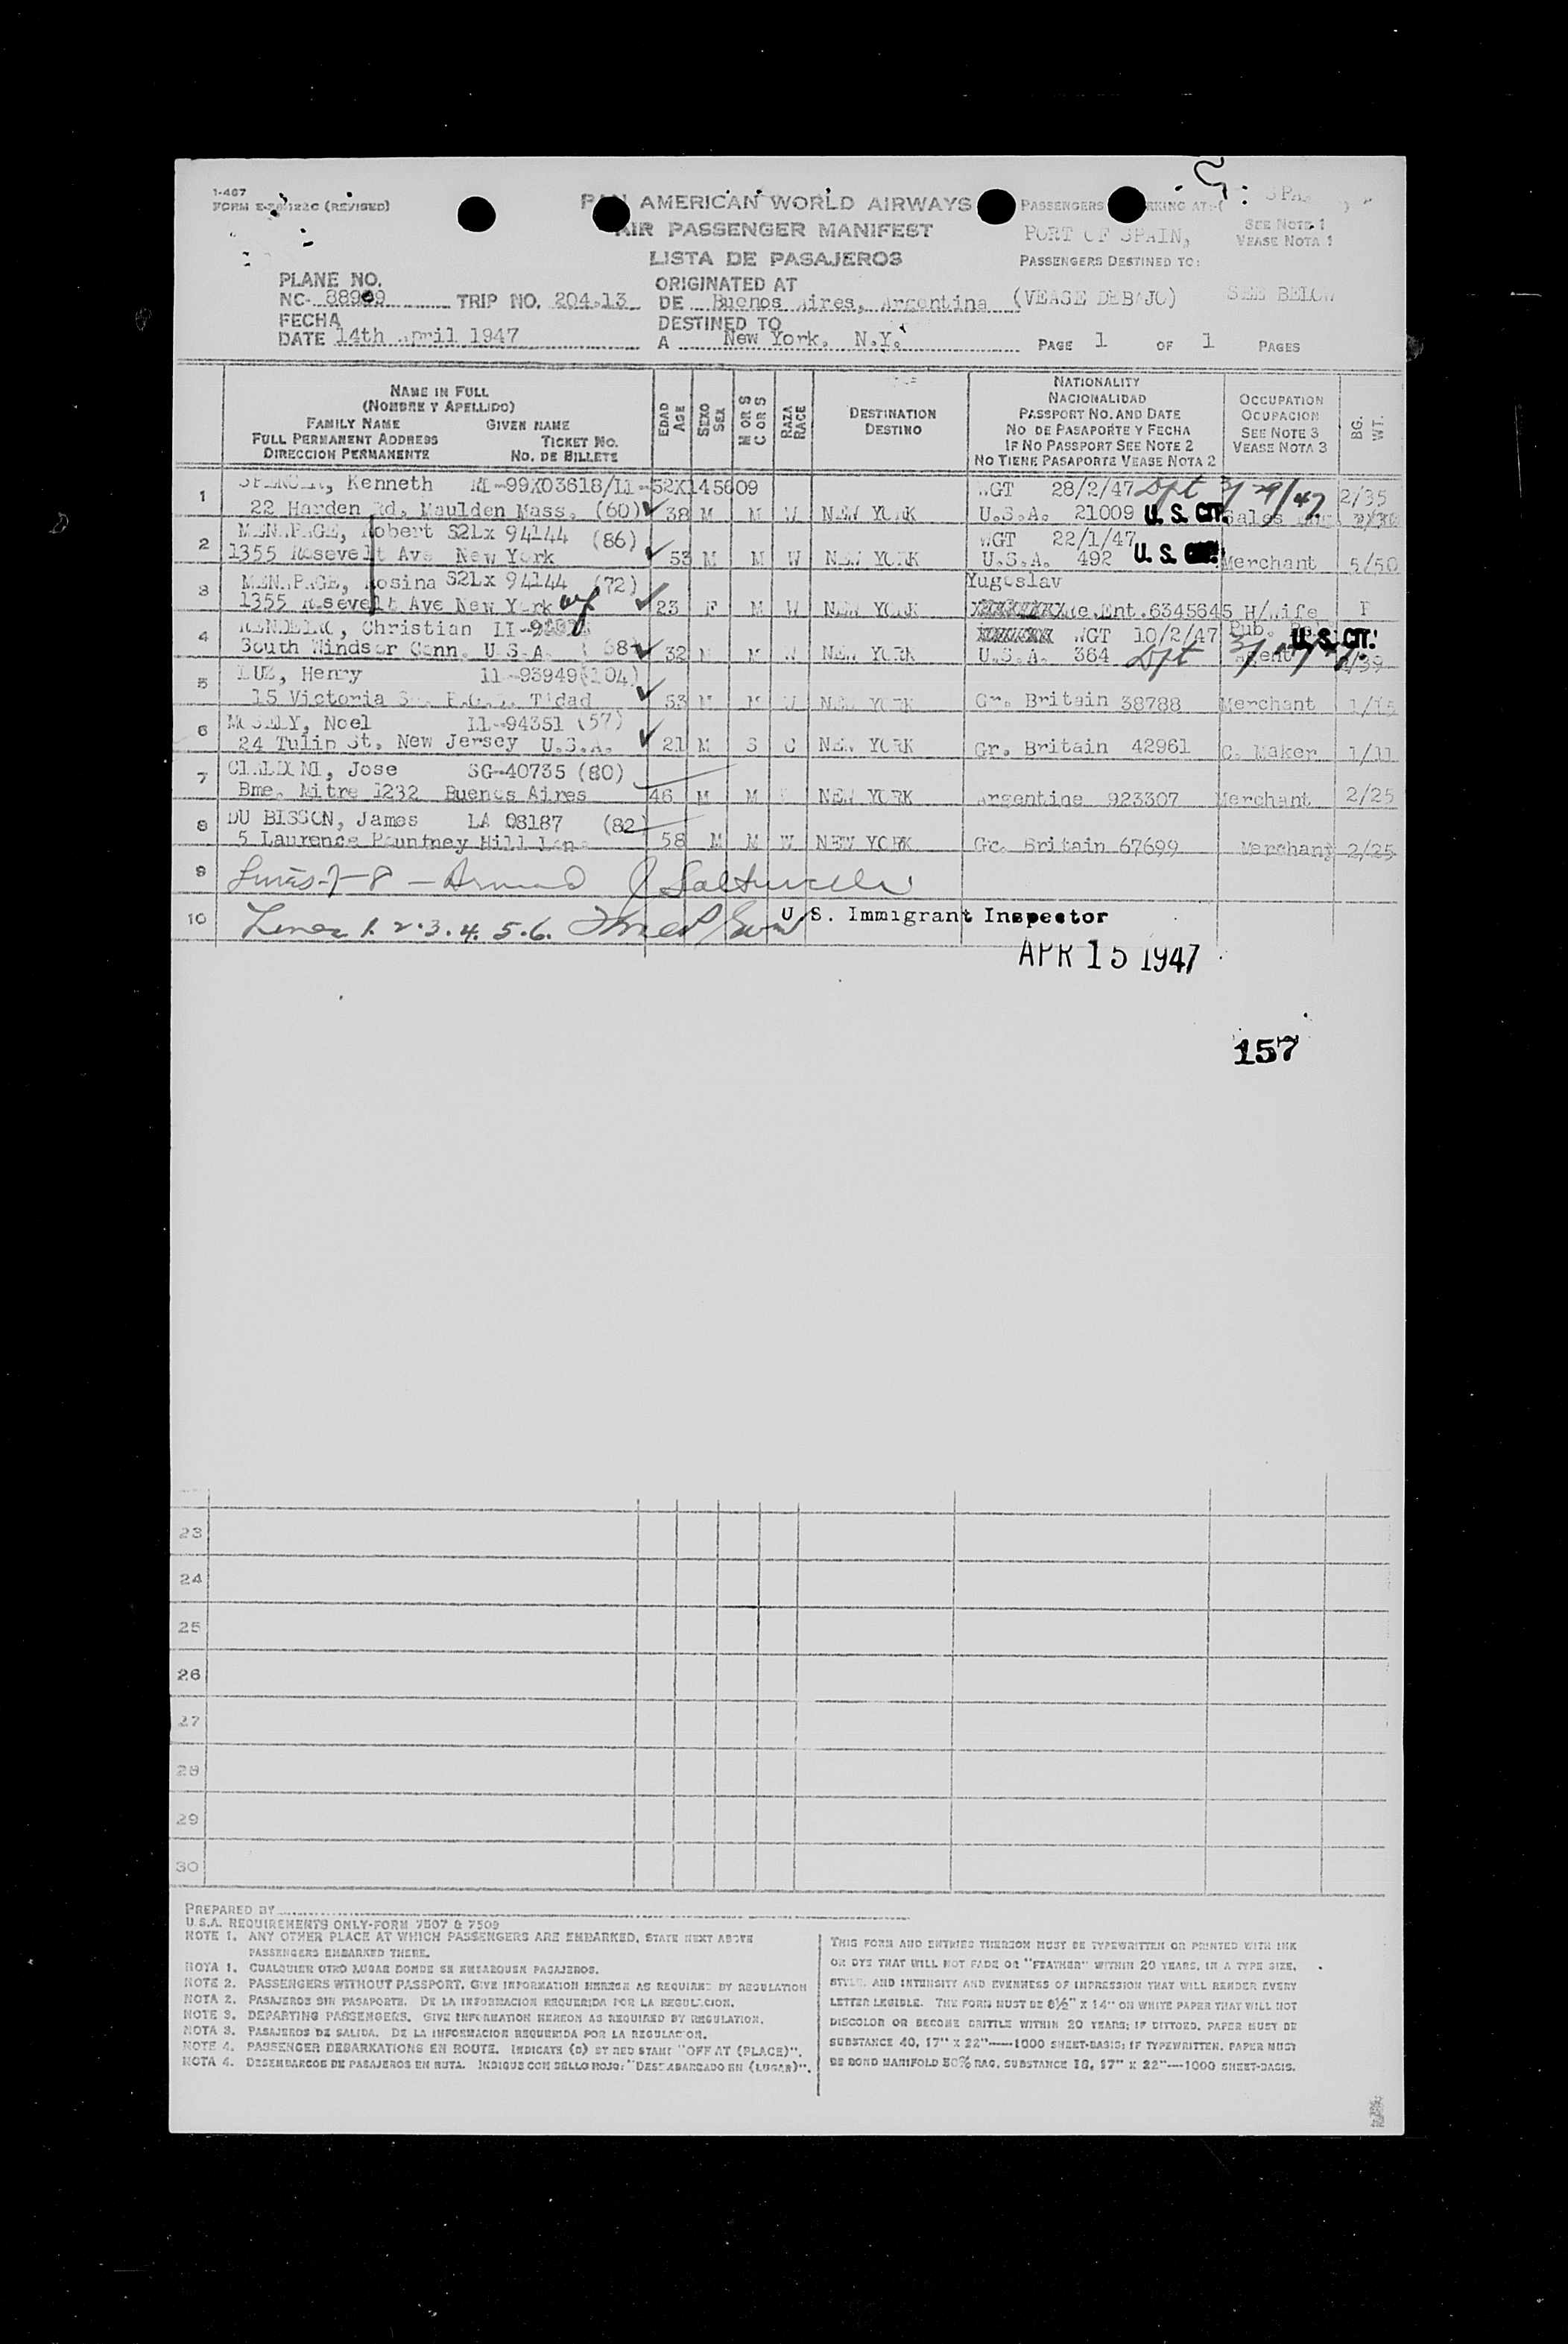 1-467
FORM (REVISED)
AMERICAN WORLD AIRWAYS
AIR PASSENGER MANIFEST
LISTA DE PASAJEROS
PASSENGERS
PORT OF SPAIN,
SEE NOTE 1
VEASE NOTA 1
PASSENGERS DESTINED TO:
(VEASE DEBAJO) SEE BELOW
PLANE NO.
NC- TRIP NO. 204-13
ORIGINATED AT
DE Buenos Aires, Argentina
FECHA
DATE 14th April 1947
DESTINED TO
A New York, N.Y.
PAGE 1 OF 1 PAGES
NAME IN FULL
(NOMBRE Y APELLIDO)
FAMILY NAME GIVEN NAME
FULL PERMANENT ADDRESS TICKET NO.
DIRECCION PERMANENTE NO. DE BILLETE
EDAD AGE
SEXO SEX
M OR S C OR S
RAZA RACE
DESTINATION
DESTINO
NATIONALITY
NACIONALIDAD
PASSPORT NO. AND DATE
NO. DE PASAPORTE Y FECHA
IF NO PASSPORT SEE NOTE 2
NO TIENE PASAPORTE VEASE NOTA 2
OCCUPATION
OCUPACION
SEE NOTE 3
VEASE NOTA 3
BG. WT.
1 Kenneth WGT 28/2/47 Dpt 2/35
22 Harden Rd, Maulden Mass. (60) 38 M M W NEW YORK U.S.A. 21009 U.S. CIT. Sales
2 Robert S2Lx 94144 (86) WGT 22/1/47
1355 Rosevelt Ave New York 53 M M W NEW YORK U.S.A. 492 U.S. Merchant 5/50
3 Rosina S2Lx 94144 (72) Yugoslav
1355 Rosevelt Ave New York 23 F M W NEW YORK Re.Ent.6345645 H/Wife
4 Christian WGT 10/2/47 Pub.
South Windsor Conn. U.S.A. 32 M M W NEW YORK U.S.A. 364 Dpt U.S. CIT.
5 Henry 11-93949(104)
15 Victoria 53 M M W NEW YORK Gr. Britain 38788 Merchant 1/15
6 Noel 11-94351 (57)
24 Tulip St, New Jersey U.S.A. 21 M S C NEW YORK Gr. Britain 42961 C. Maker 1/11
7 Jose SG-40735 (80)
Bme. Mitre 1232 Buenos Aires 46 M M NEW YORK Argentine 923307 Merchant 2/25
8 DU BISSON, James LA 08187 (82)
5 Laurence Pountney Hill 58 M M W NEW YORK Gr. Britain 67699 Merchant 2/25
9 Lines-7-8 -
10 Lines 1. 2.3.4. 5.6. U.S. Immigrant Inspector
APR 15 1947
157
23
24
25
26
27
28
29
30
PREPARED BY
U.S.A. REQUIREMENTS ONLY-FORM 7507 & 7509
NOTE 1. ANY OTHER PLACE AT WHICH PASSENGERS ARE EMBARKED, STATE NEXT ABOVE
PASSENGERS EMBARKED THERE.
NOTA 1. CUALQUIER OTRO LUGAR DONDE SE EMBARQUEN PASAJEROS.
NOTE 2. PASSENGERS WITHOUT PASSPORT. GIVE INFORMATION HEREON AS REQUIRED BY REGULATION
NOTA 2. PASAJEROS SIN PASAPORTE. DE LA INFORMACION REQUERIDA POR LA REGULACION.
NOTE 3. DEPARTING PASSENGERS. GIVE INFORMATION HEREON AS REQUIRED BY REGULATION.
NOTA 3. PASAJEROS DE SALIDA. DE LA INFORMACION REQUERIDA POR LA REGULACION.
NOTE 4. PASSENGER DEBARKATIONS EN ROUTE. INDICATE (D) BY RED STAMP "OFF AT (PLACE)".
NOTA 4. DESEMBARCOS DE PASAJEROS EN RUTA. INDIQUE CON SELLO ROJO: "DESEMBARCADO EN (LUGAR)".
THIS FORM AND ENTRIES THEREON MUST BE TYPEWRITTEN OR PRINTED WITH INK
OR DYE THAT WILL NOT FADE OR "FEATHER" WITHIN 20 YEARS, IN A TYPE SIZE,
STYLE, AND INTENSITY AND EVENNESS OF IMPRESSION THAT WILL RENDER EVERY
LETTER LEGIBLE. THE FORM MUST BE 8½" X 14" ON WHITE PAPER THAT WILL NOT
DISCOLOR OR BECOME BRITTLE WITHIN 20 YEARS; IF DITTOED, PAPER MUST BE
SUBSTANCE 40, 17" X 22"-----1000 SHEET-BASIS; IF TYPEWRITTEN, PAPER MUST
BE BOND MANIFOLD 50% RAG, SUBSTANCE 16, 17" X 22"----1000 SHEET-BASIS.